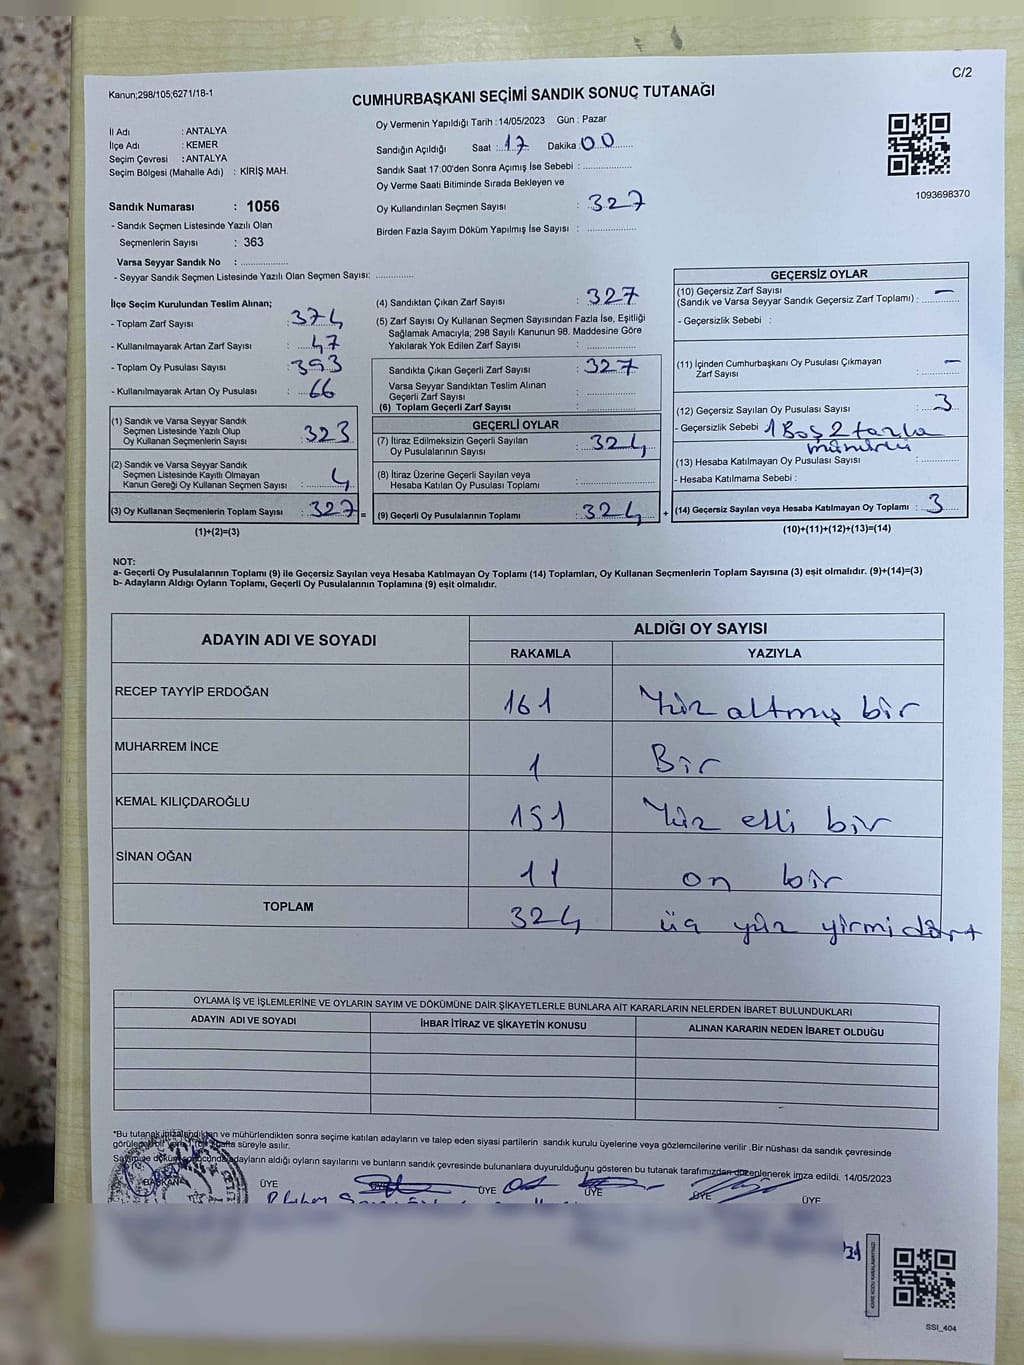 C/2
Kanun;298/105;6271/18-1
CUMHURBAŞKANI SEÇİMİ SANDIK SONUÇ TUTANAĞI
İl Adı : ANTALYA
İlçe Adı : KEMER
Seçim Çevresi : ANTALYA
Seçim Bölgesi (Mahalle Adı) : KİRİŞ MAH.
Sandık Numarası : 1056
- Sandık Seçmen Listesinde Yazılı Olan
Seçmenlerin Sayısı : 363
Varsa Seyyar Sandık No : ..................
- Seyyar Sandık Seçmen Listesinde Yazılı Olan Seçmen Sayısı: ..............
Oy Vermenin Yapıldığı Tarih :14/05/2023 Gün : Pazar
Sandığın Açıldığı Saat : 17 Dakika : 00
Sandık Saat 17:00'den Sonra Açımış İse Sebebi : ..................
Oy Verme Saati Bitiminde Sırada Bekleyen ve
Oy Kullandırılan Seçmen Sayısı : 327
Birden Fazla Sayım Döküm Yapılmış İse Sayısı : ..................
1093698370
İlçe Seçim Kurulundan Teslim Alınan;
- Toplam Zarf Sayısı : 374
- Kullanılmayarak Artan Zarf Sayısı : 47
- Toplam Oy Pusulası Sayısı : 393
- Kullanılmayarak Artan Oy Pusulası : 66
(1) Sandık ve Varsa Seyyar Sandık
Seçmen Listesinde Yazılı Olup
Oy Kullanan Seçmenlerin Sayısı : 323
(2) Sandık ve Varsa Seyyar Sandık
Seçmen Listesinde Kayıtlı Olmayan
Kanun Gereği Oy Kullanan Seçmen Sayısı : 4
(3) Oy Kullanan Seçmenlerin Toplam Sayısı : 327 =
(1)+(2)=(3)
(4) Sandıktan Çıkan Zarf Sayısı : 327
(5) Zarf Sayısı Oy Kullanan Seçmen Sayısından Fazla İse, Eşitliği
Sağlamak Amacıyla; 298 Sayılı Kanunun 98. Maddesine Göre
Yakılarak Yok Edilen Zarf Sayısı : ..................
Sandıkta Çıkan Geçerli Zarf Sayısı : 327
Varsa Seyyar Sandıktan Teslim Alınan
Geçerli Zarf Sayısı : ..................
(6) Toplam Geçerli Zarf Sayısı : ..................
GEÇERLİ OYLAR
(7) İtiraz Edilmeksizin Geçerli Sayılan
Oy Pusulalarının Sayısı : 324
(8) İtiraz Üzerine Geçerli Sayılan veya
Hesaba Katılan Oy Pusulası Toplamı : ..................
(9) Geçerli Oy Pusulalarının Toplamı : 324 +
GEÇERSİZ OYLAR
(10) Geçersiz Zarf Sayısı
(Sandık ve Varsa Seyyar Sandık Geçersiz Zarf Toplamı) : –
- Geçersizlik Sebebi :
(11) İçinden Cumhurbaşkanı Oy Pusulası Çıkmayan
Zarf Sayısı : –
(12) Geçersiz Sayılan Oy Pusulası Sayısı : 3
- Geçersizlik Sebebi 1 Boş 2 fazla
mühürlü
(13) Hesaba Katılmayan Oy Pusulası Sayısı : ..................
- Hesaba Katılmama Sebebi :
(14) Geçersiz Sayılan veya Hesaba Katılmayan Oy Toplamı : 3
(10)+(11)+(12)+(13)=(14)
NOT:
a- Geçerli Oy Pusulalarının Toplamı (9) ile Geçersiz Sayılan veya Hesaba Katılmayan Oy Toplamı (14) Toplamları, Oy Kullanan Seçmenlerin Toplam Sayısına (3) eşit olmalıdır. (9)+(14)=(3)
b- Adayların Aldığı Oyların Toplamı, Geçerli Oy Pusulalarının Toplamına (9) eşit olmalıdır.
ADAYIN ADI VE SOYADI
ALDIĞI OY SAYISI
RAKAMLA YAZIYLA
RECEP TAYYİP ERDOĞAN 161 Yüz altmış bir
MUHARREM İNCE 1 Bir
KEMAL KILIÇDAROĞLU 151 Yüz elli bir
SİNAN OĞAN 11 on bir
TOPLAM 324 üç yüz yirmi dört
OYLAMA İŞ VE İŞLEMLERİNE VE OYLARIN SAYIM VE DÖKÜMÜNE DAİR ŞİKAYETLERLE BUNLARA AİT KARARLARIN NELERDEN İBARET BULUNDUKLARI
ADAYIN ADI VE SOYADI İHBAR İTİRAZ VE ŞİKAYETİN KONUSU ALINAN KARARIN NEDEN İBARET OLDUĞU
*Bu tutanak imzalandıktan ve mühürlendikten sonra seçime katılan adayların ve talep eden siyasi partilerin sandık kurulu üyelerine veya gözlemcilerine verilir .Bir nüshası da sandık çevresinde
görülebilir bir yere bir hafta süreyle asılır.
Sayım ve döküm sonucunda adayların aldığı oyların sayılarını ve bunların sandık çevresinde bulunanlara duyurulduğunu gösteren bu tutanak tarafımızdan düzenlenerek imza edildi. 14/05/2023
BAŞKAN ÜYE ÜYE ÜYE ÜYE ÜYE ÜYE
SSI_404